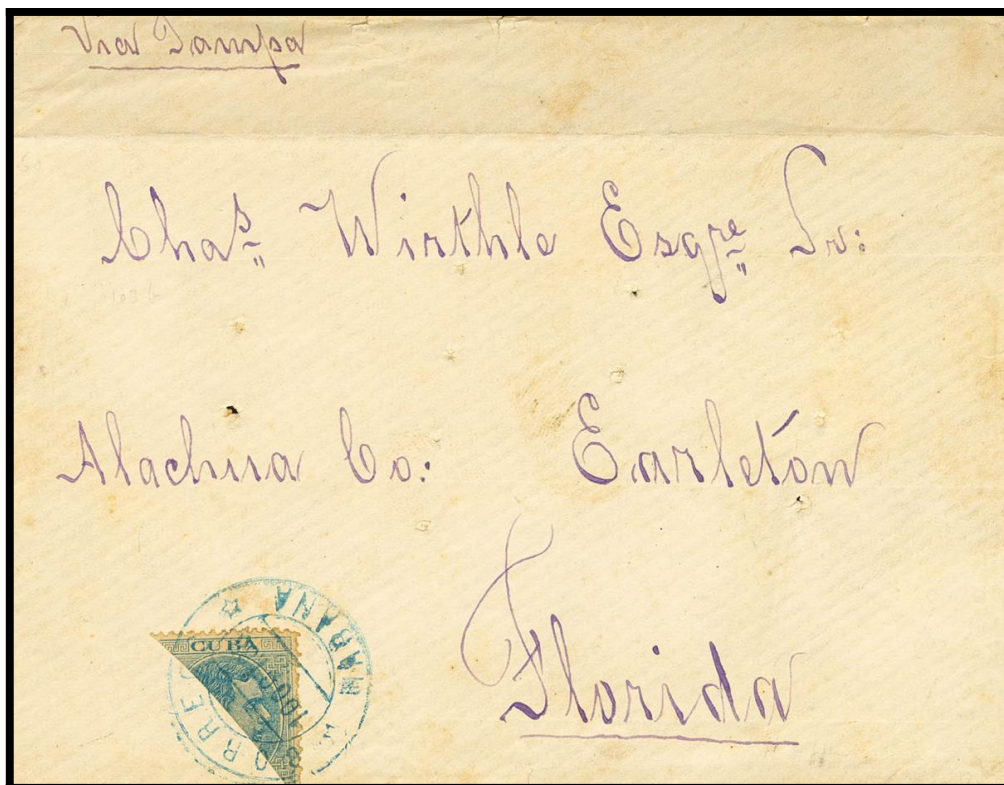 Via Tampa
Chas. Wirthle Esqre Sr:
Alachua Co: Earletón
Florida
CUBA
HABANA